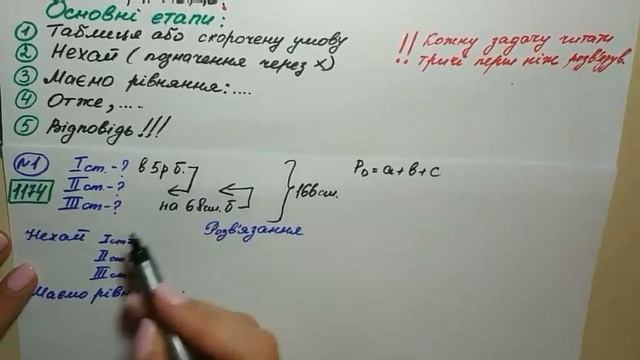 Основні етапи:
① Таблиця або скорочену умову
② Нехай (позначення через х)
③ Маємо рівняння:....
④ Отже, ....
⑤ Відповідь!!!
!! Кожну задачу читати
тричі перш ніж розв'язув.
№1 І ст.-? в 5 р б.
1174 ІІ ст-?
ІІІ ст-? на 68см. б
166см.
P△ = a+b+c
Розв'язання
Нехай І ст
ІІ
ІІІ
Маємо рівн